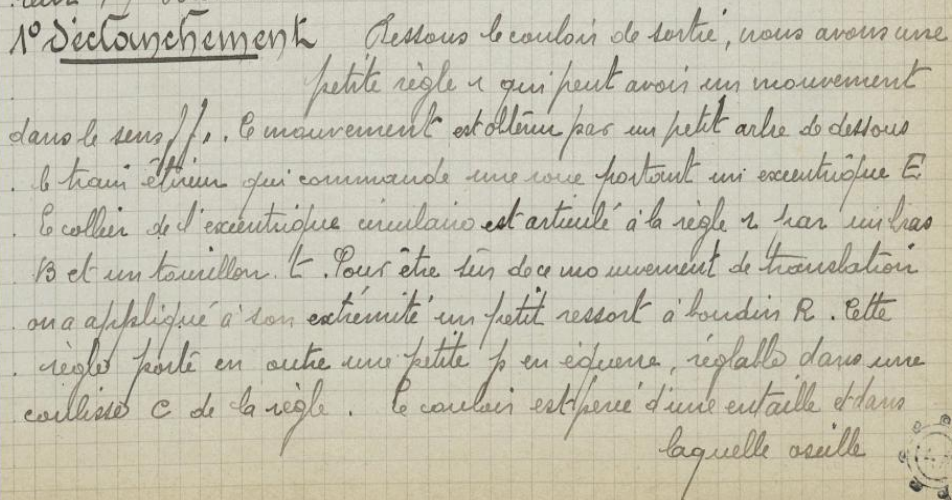 1° Déclanchement Dessous le couloir de sortie, nous avons une
petite règle r qui peut avoir un mouvement
dans le sens f f,. Ce mouvement est obtenu par un petit arbre de dessous
le train étireur qui commande une roue portant un excentrique E
Le collier de l'excentrique circulaire est articulé à la règle r par un bras
B et un tourillon t. Pour être sûr de ce mouvement de translation
on a appliqué à son extrémité un petit ressort à boudin R. Cette
règle porte en outre une petite p en équerre, réglable dans une
coulisse C de la règle. Le couloir est percé d'une entaille et dans
laquelle oscille